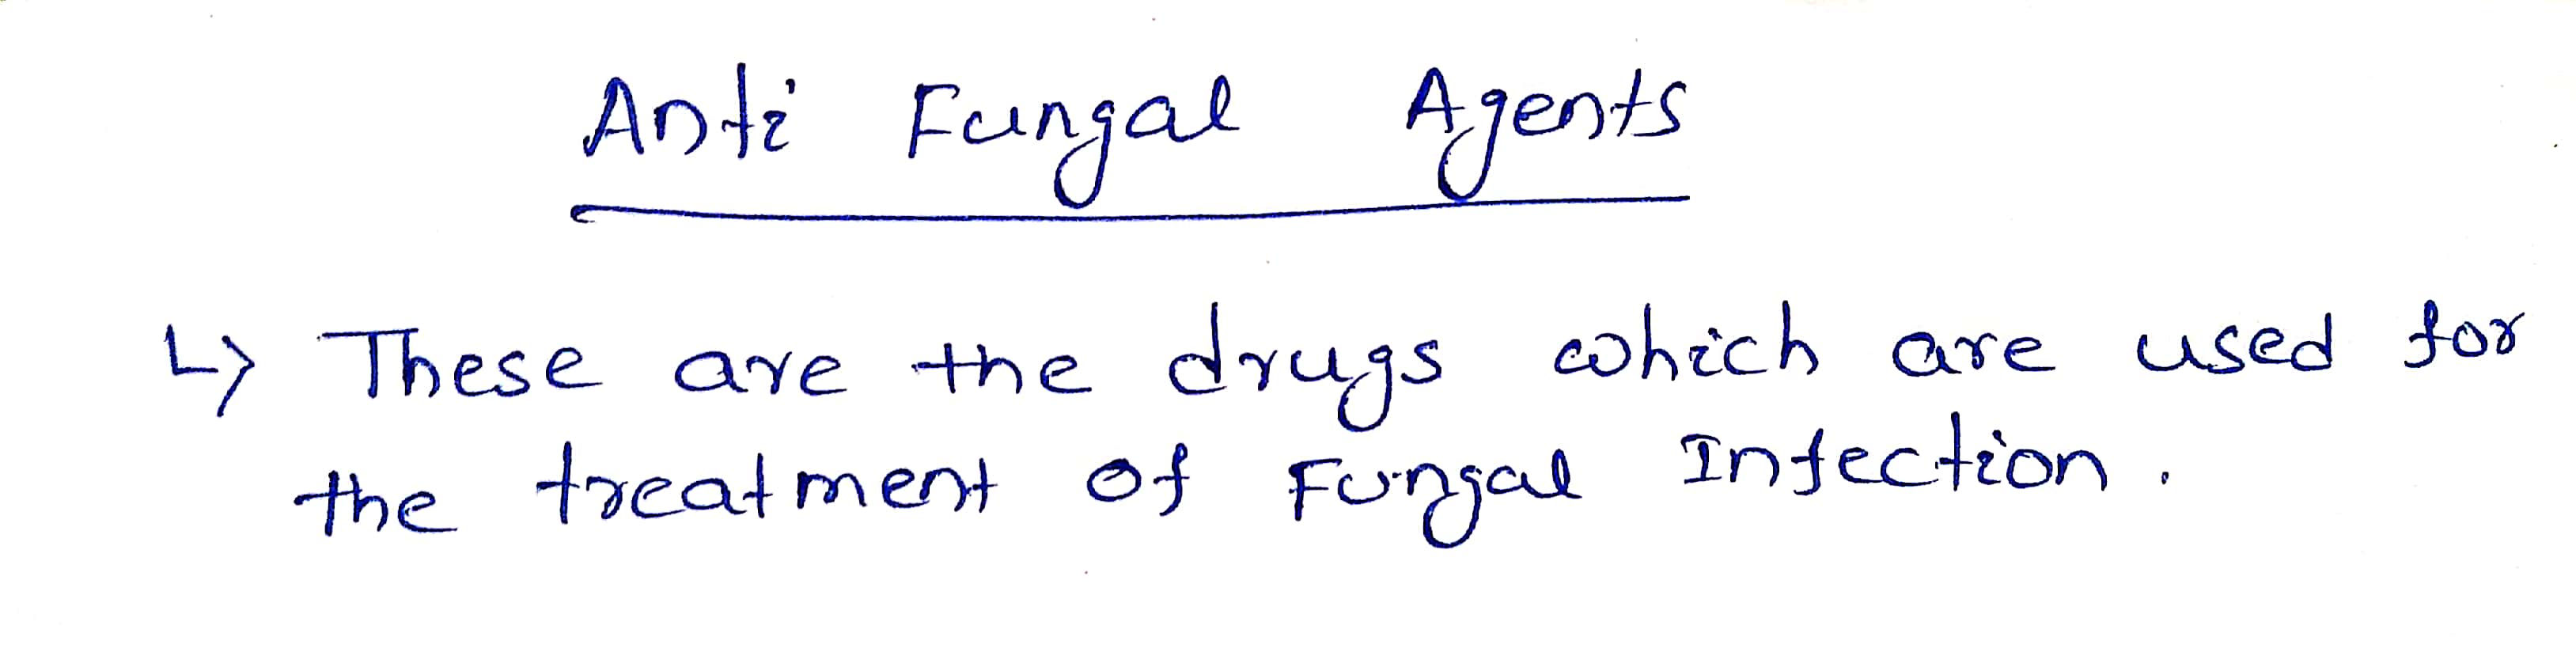 Anti Fungal Agents
↳ These are the drugs which are used for
the treatment of Fungal Infection.